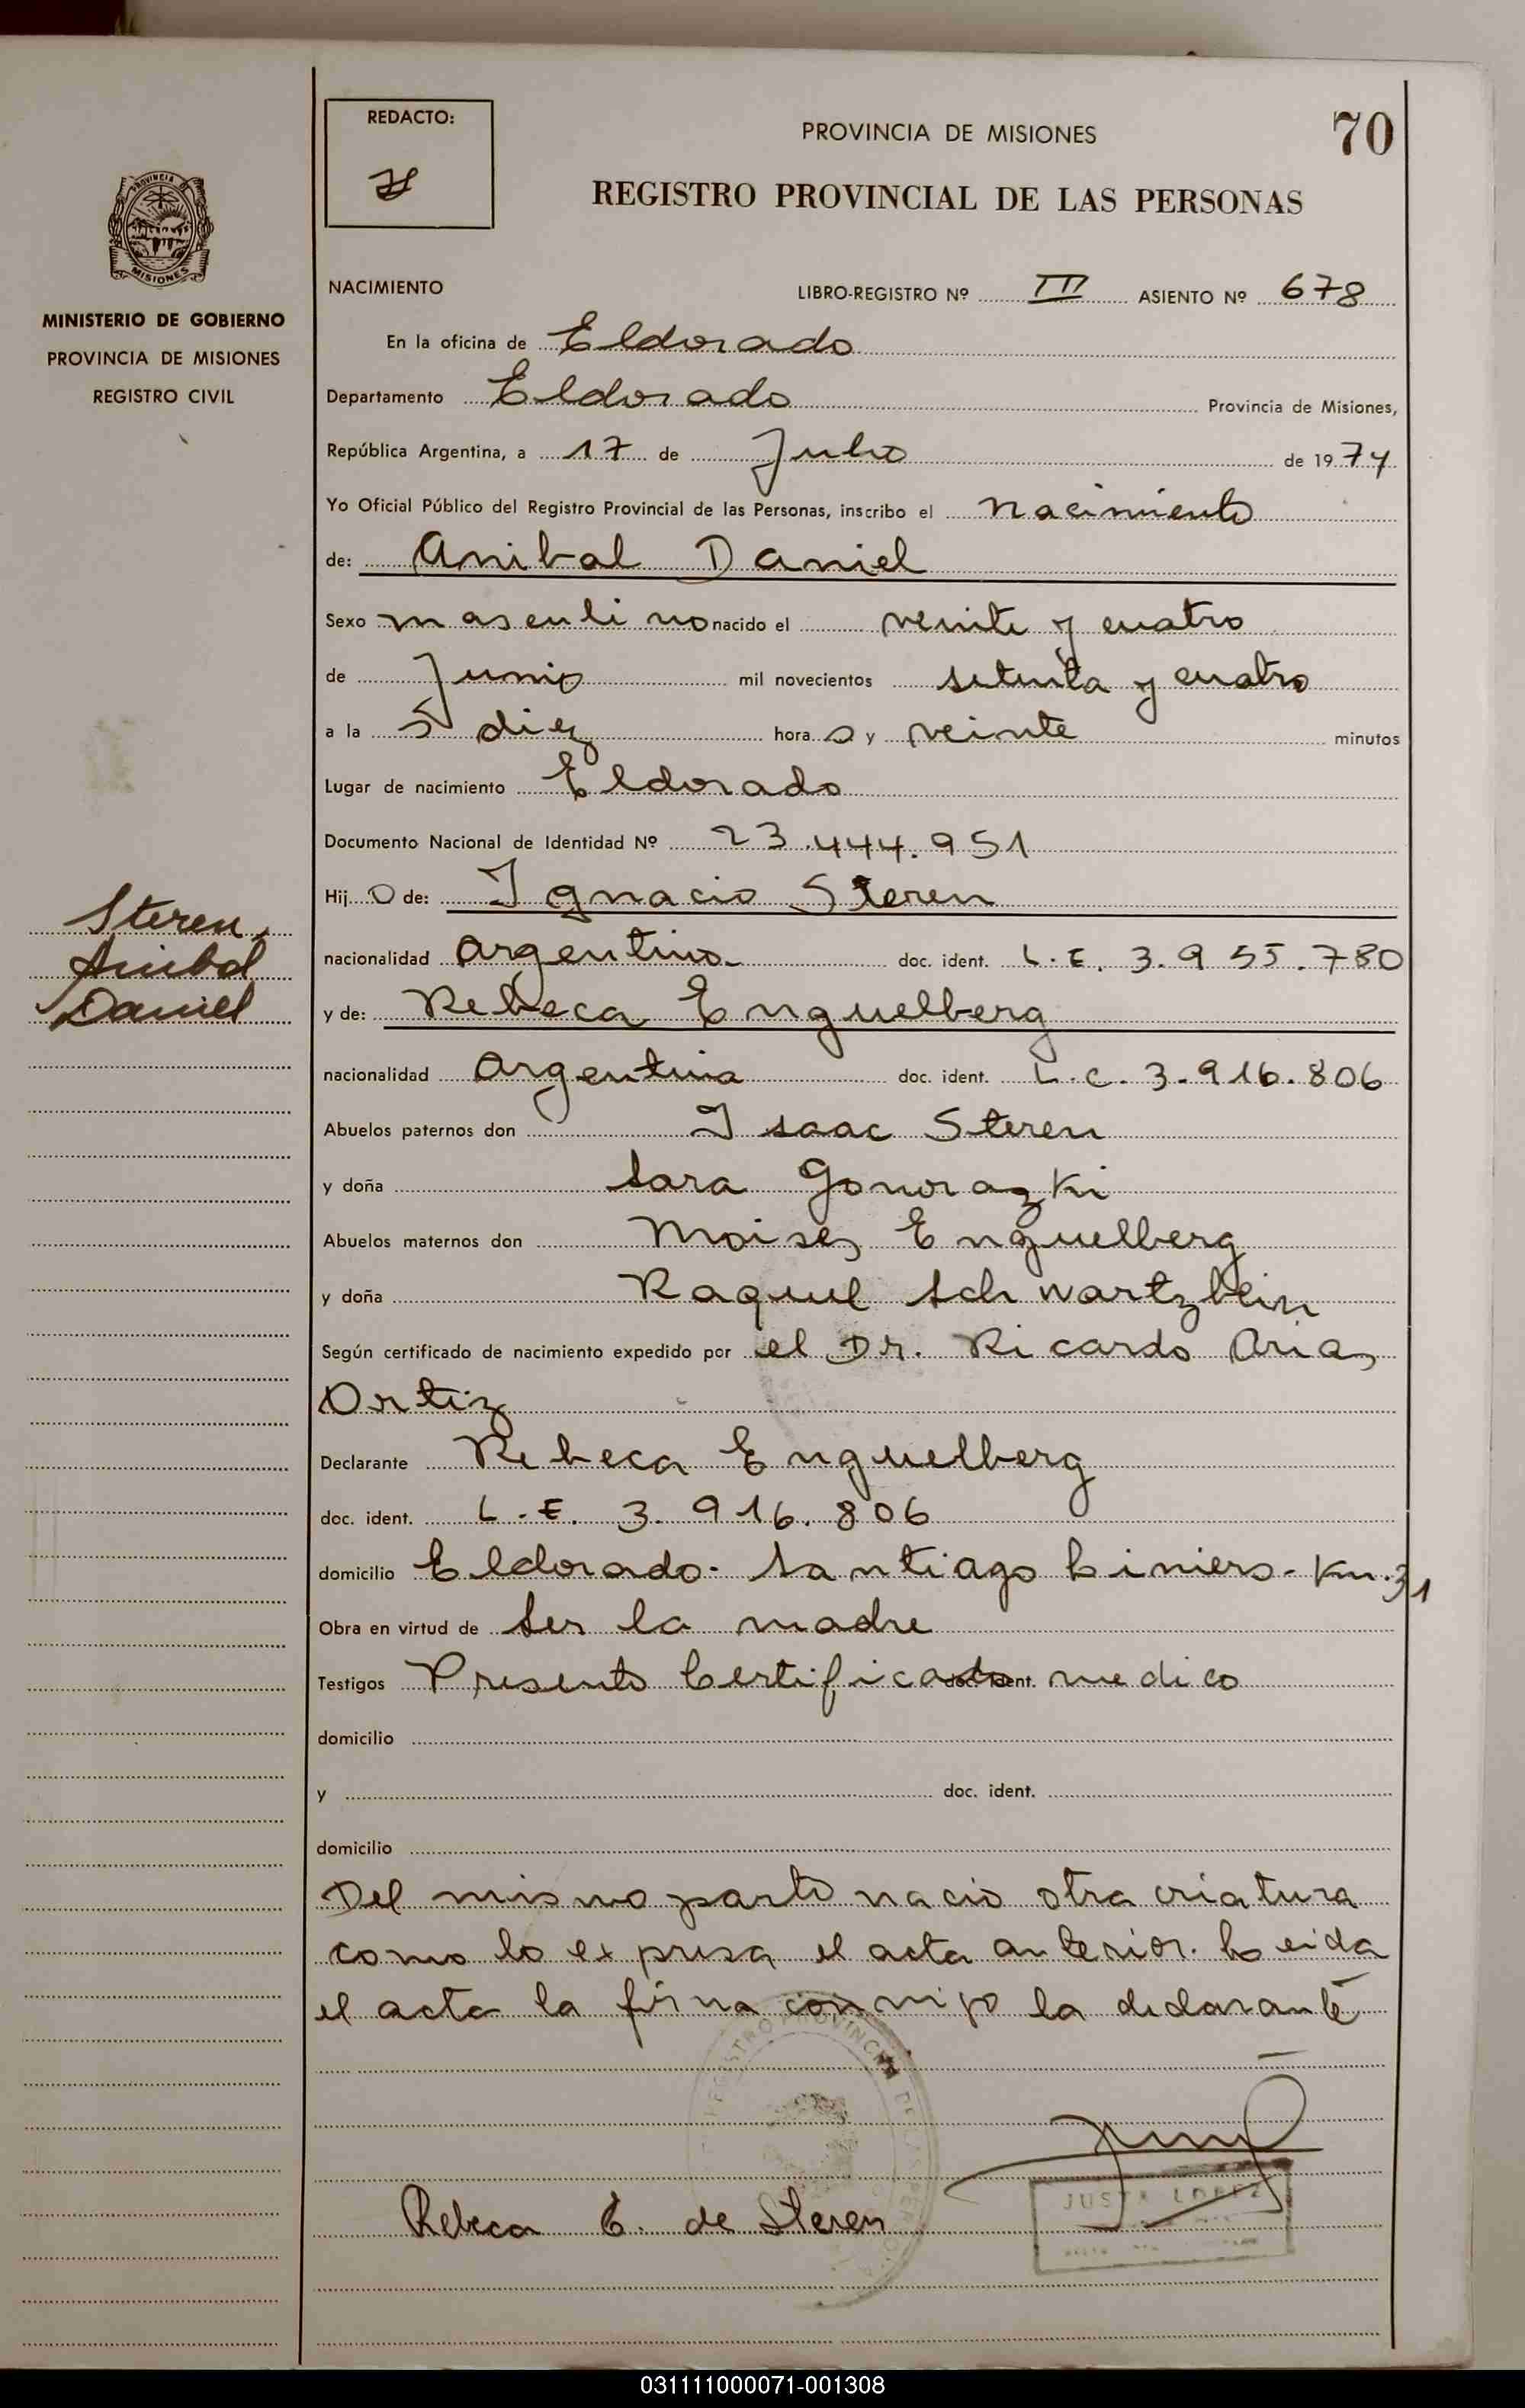 REDACTO:
PROVINCIA DE MISIONES
70
REGISTRO PROVINCIAL DE LAS PERSONAS
PROVINCIA DE
MISIONES
MINISTERIO DE GOBIERNO
PROVINCIA DE MISIONES
REGISTRO CIVIL
NACIMIENTO
LIBRO-REGISTRO Nº III ASIENTO Nº 678
En la oficina de Eldorado
Departamento Eldorado Provincia de Misiones,
República Argentina, a 17 de Julio de 1974
Yo Oficial Público del Registro Provincial de las Personas, inscribo el nacimiento
de: Anibal Daniel
Sexo masculino nacido el veinte y cuatro
de Junio mil novecientos setenta y cuatro
a la s diez hora s y veinte minutos
Lugar de nacimiento Eldorado
Documento Nacional de Identidad Nº 23.444.951
Hij o de: Ignacio Steren
Steren,
Anibal
Daniel
nacionalidad argentino doc. ident. L.E. 3.955.780
y de: Rebeca Enguelberg
nacionalidad argentina doc. ident. L.C. 3.916.806
Abuelos paternos don Isaac Steren
y doña Sara Gonorazki
Abuelos maternos don Moises Enguelberg
y doña Raquel Schwartzbein
Según certificado de nacimiento expedido por el Dr. Ricardo Arias
Ortiz
Declarante Rebeca Enguelberg
doc. ident. L.E. 3.916.806
domicilio Eldorado- Santiago Liniers- Km.31
Obra en virtud de ser la madre
Testigos Presento Certificado doc. ident. medico
domicilio
y doc. ident.
domicilio
Del mismo parto nacio otra criatura
como lo expresa el acta anterior. Leida
el acta la firma conmigo la declarante
REGISTRO PROVINCIAL DE LAS PERSONAS
JUSTA LOPEZ
Rebeca E. de Steren
031111000071-001308